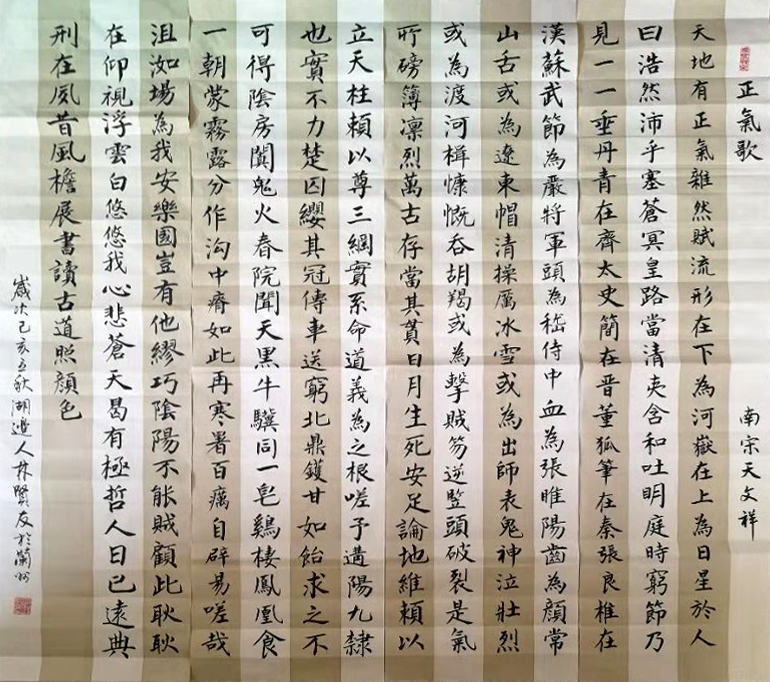 正氣歌
南宗天文祥
天地有正氣雜然賦流形在下為河嶽在上為日星於人
曰浩然沛乎塞蒼冥皇路當清夷含和吐明庭時窮節乃
見一一垂丹青在齊太史簡在晉董狐筆在秦張良椎在
漢蘇武節為嚴將軍頭為嵇侍中血為張睢陽齒為顏常
山舌或為遼東帽清操厲冰雪或為出師表鬼神泣壯烈
或為渡河楫慷慨吞胡羯或為擊賊笏逆豎頭破裂是氣
所磅簿凛烈萬古存當其貫日月生死安足論地維賴以
立天柱賴以尊三綱實系命道義為之根嗟予遘陽九隸
也實不力楚囚纓其冠傳車送窮北鼎鑊甘如飴求之不
可得陰房闃鬼火春院聞天黑牛驥同一皂鷄棲鳳凰食
一朝蒙霧露分作溝中瘠如此再寒暑百癘自辟易嗟哉
沮洳場為我安樂國豈有他繆巧陰陽不能賊顧此耿耿
在仰視浮雲白悠悠我心悲蒼天曷有極哲人日已遠典
刑在夙昔風檐展書讀古道照顏色
歲次己亥立秋湖邊人林賢友於蘭州